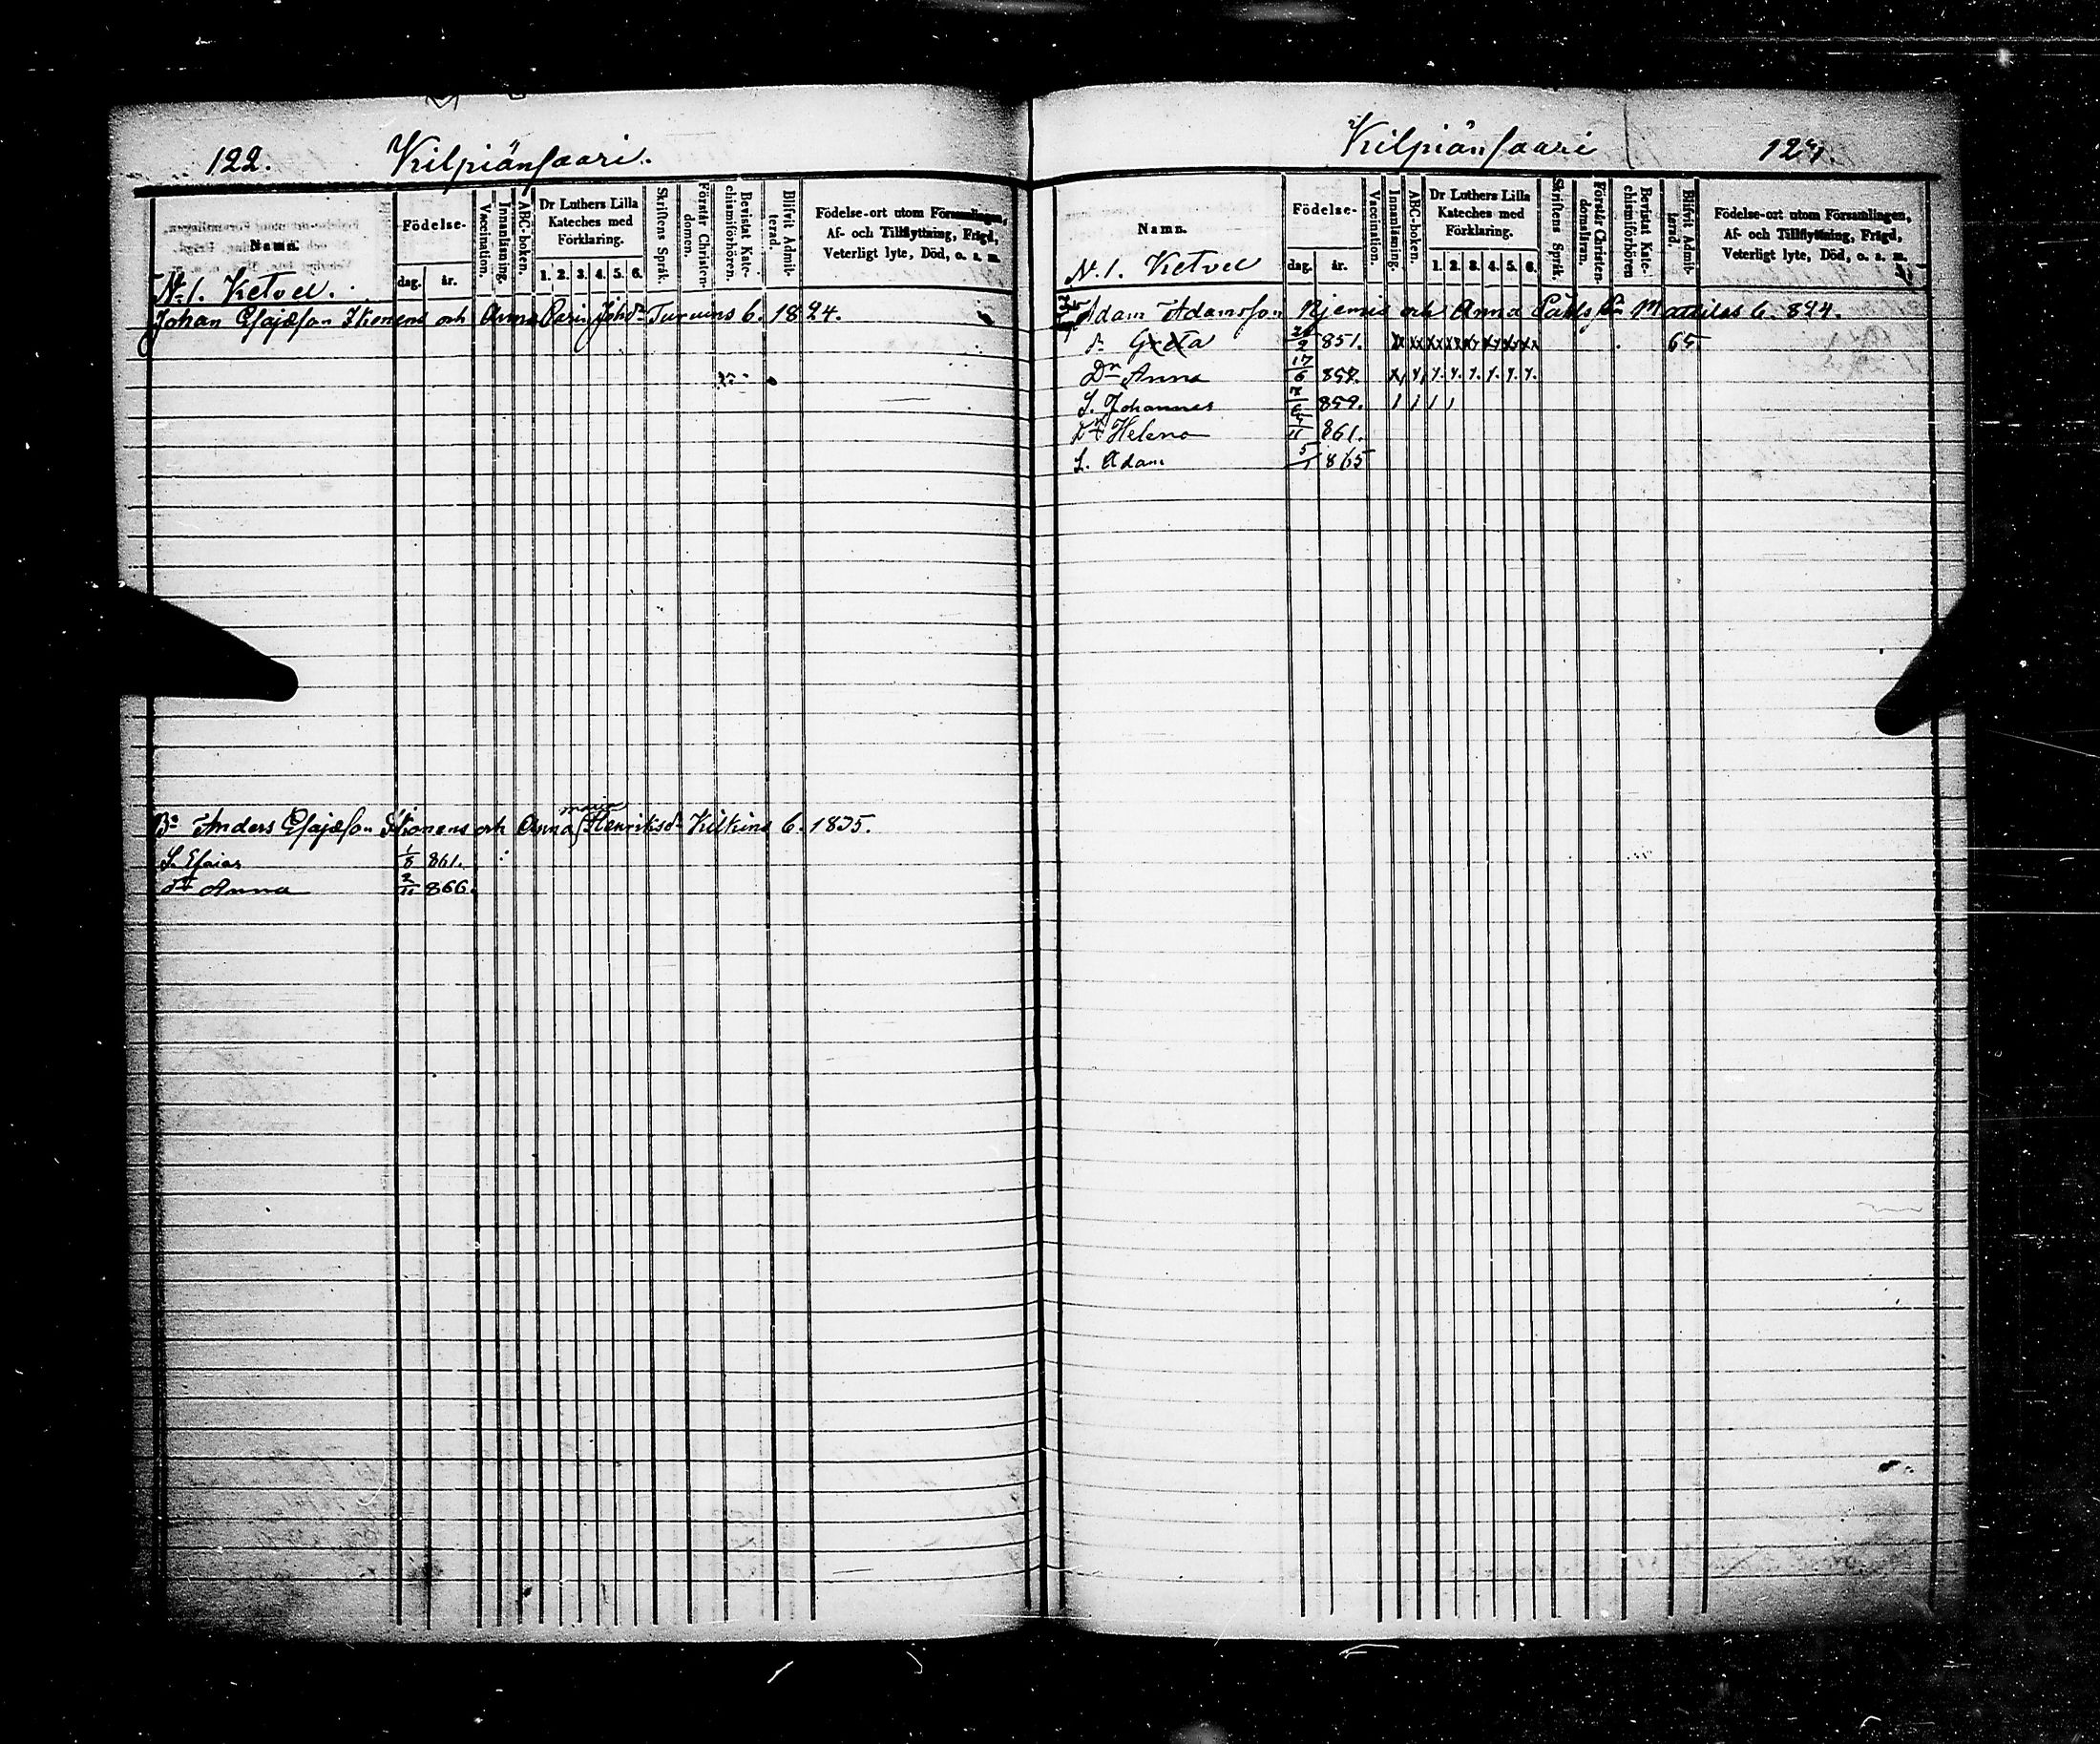 122. Kilpiänsaari.
Namn.
Födelse-
dag. år.
Vaccination.
Innanläsning.
ABC-boken.
Dr Luthers Lilla Kateches med Förklaring.
1. 2. 3. 4. 5. 6.
Skriftens Språk.
Förstår Christendomen.
Bevistat Katechismiförhören.
Blifvit Admitterad.
Födelse-ort utom Församlingen,
Af- och Tillflyttning, Frägd,
Veterligt lyte, Död, o. s. m.
N:1. Ketvel.
Johan Esajæson Ikonens och Anna Carin Johsdr 6. 1824.
Br Anders Esajæson Ikonens och Anna maria Henriksdr Kilkins 6. 1835.
S. Esaias 1/8 861.
dr Anna 2/11 866.
Kilpiänsaari 127.
Namn.
Födelse-
dag. år.
Vaccination.
Innanläsning.
ABC-boken.
Dr Luthers Lilla Kateches med Förklaring.
1. 2. 3. 4. 5. 6.
Skriftens Språk.
Förstår Christendomsläran.
Bevistat Katechismiförhören
Blifvit Admitterad.
Födelse-ort utom Församlingen,
Af- och Tillflyttning, Frägd,
Veterligt lyte, Död, o. s. m.
N:1. Ketvel
Adam Adamsson Njemis och Anna 6. 824.
dr Greta 851. xx xx xx xx xx xx xx xx 65.
Dr Anna 17/6 857.
S. Johannes 859.
Dr Helena 861.
S. Adam 5/1 865